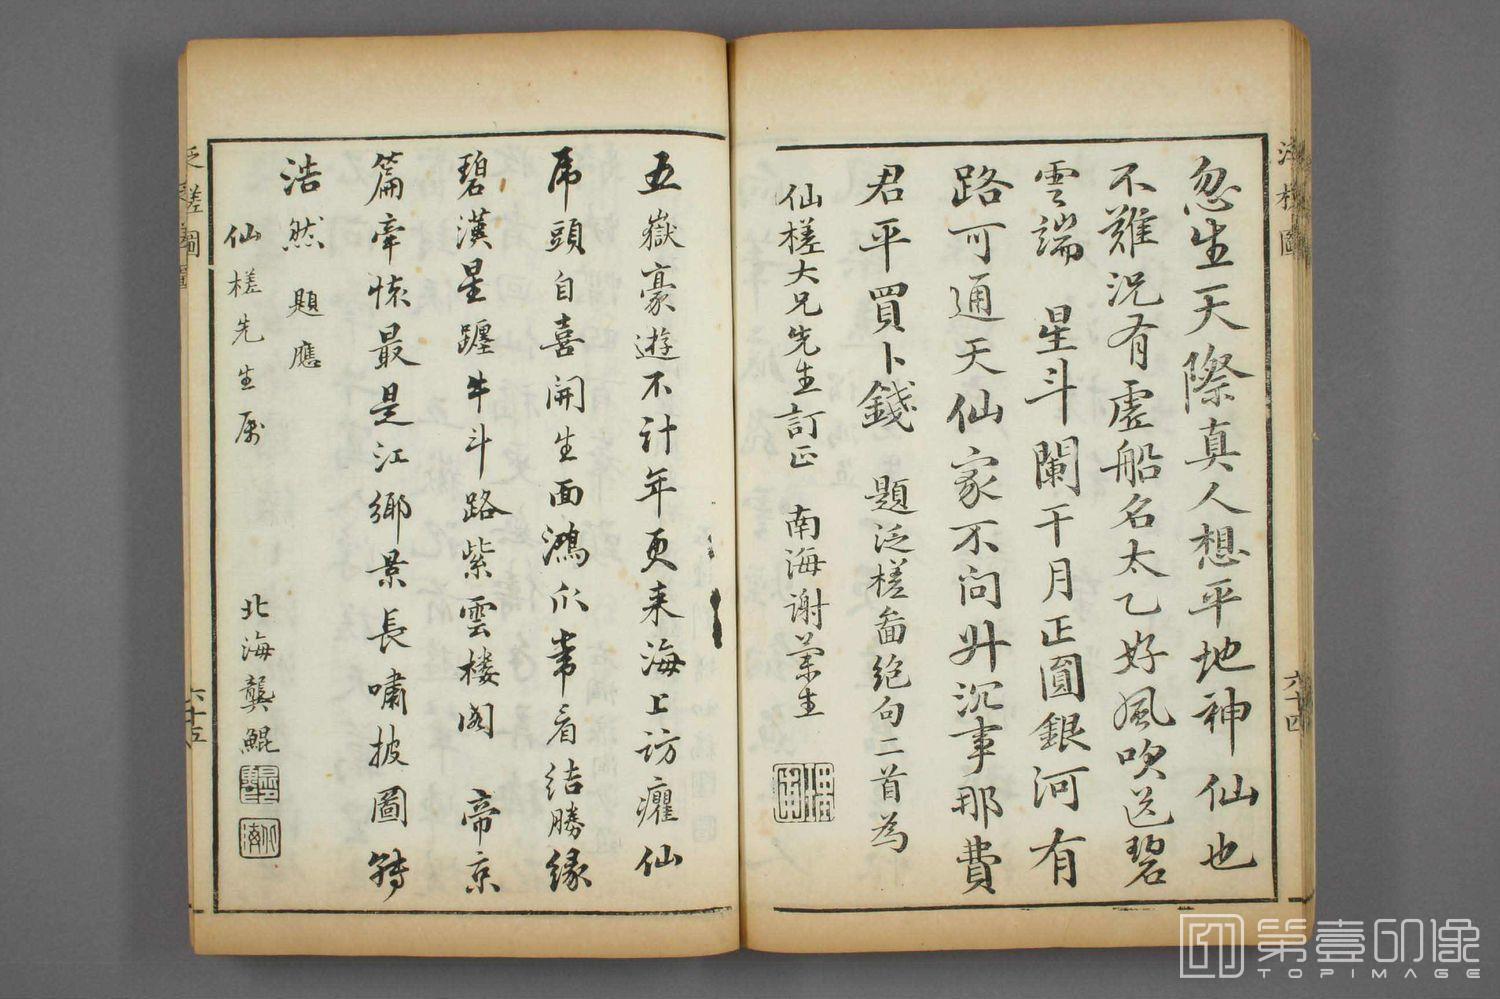 忽生天際真人想平地神仙也
不難況有虛船名太乙好風吹送碧
雲端　星斗闌干月正圓銀河有
路可通天仙家不問升沉事那費
君平買卜錢　題泛槎啚絶句二首為
仙槎大兄先生訂正　南海謝蘭生
六十四
五嶽豪遊不計年更来海上訪癯仙
虎頭自喜開生面鴻爪常看結勝緣
碧漢星躔牛斗路紫雲樓閣　帝京
篇牽懷最是江鄉景長嘯披圖轉
浩然　題應
仙槎先生属　北海龔鯤
泛槎圖
六十五
第壹印像
TOPIMAGE